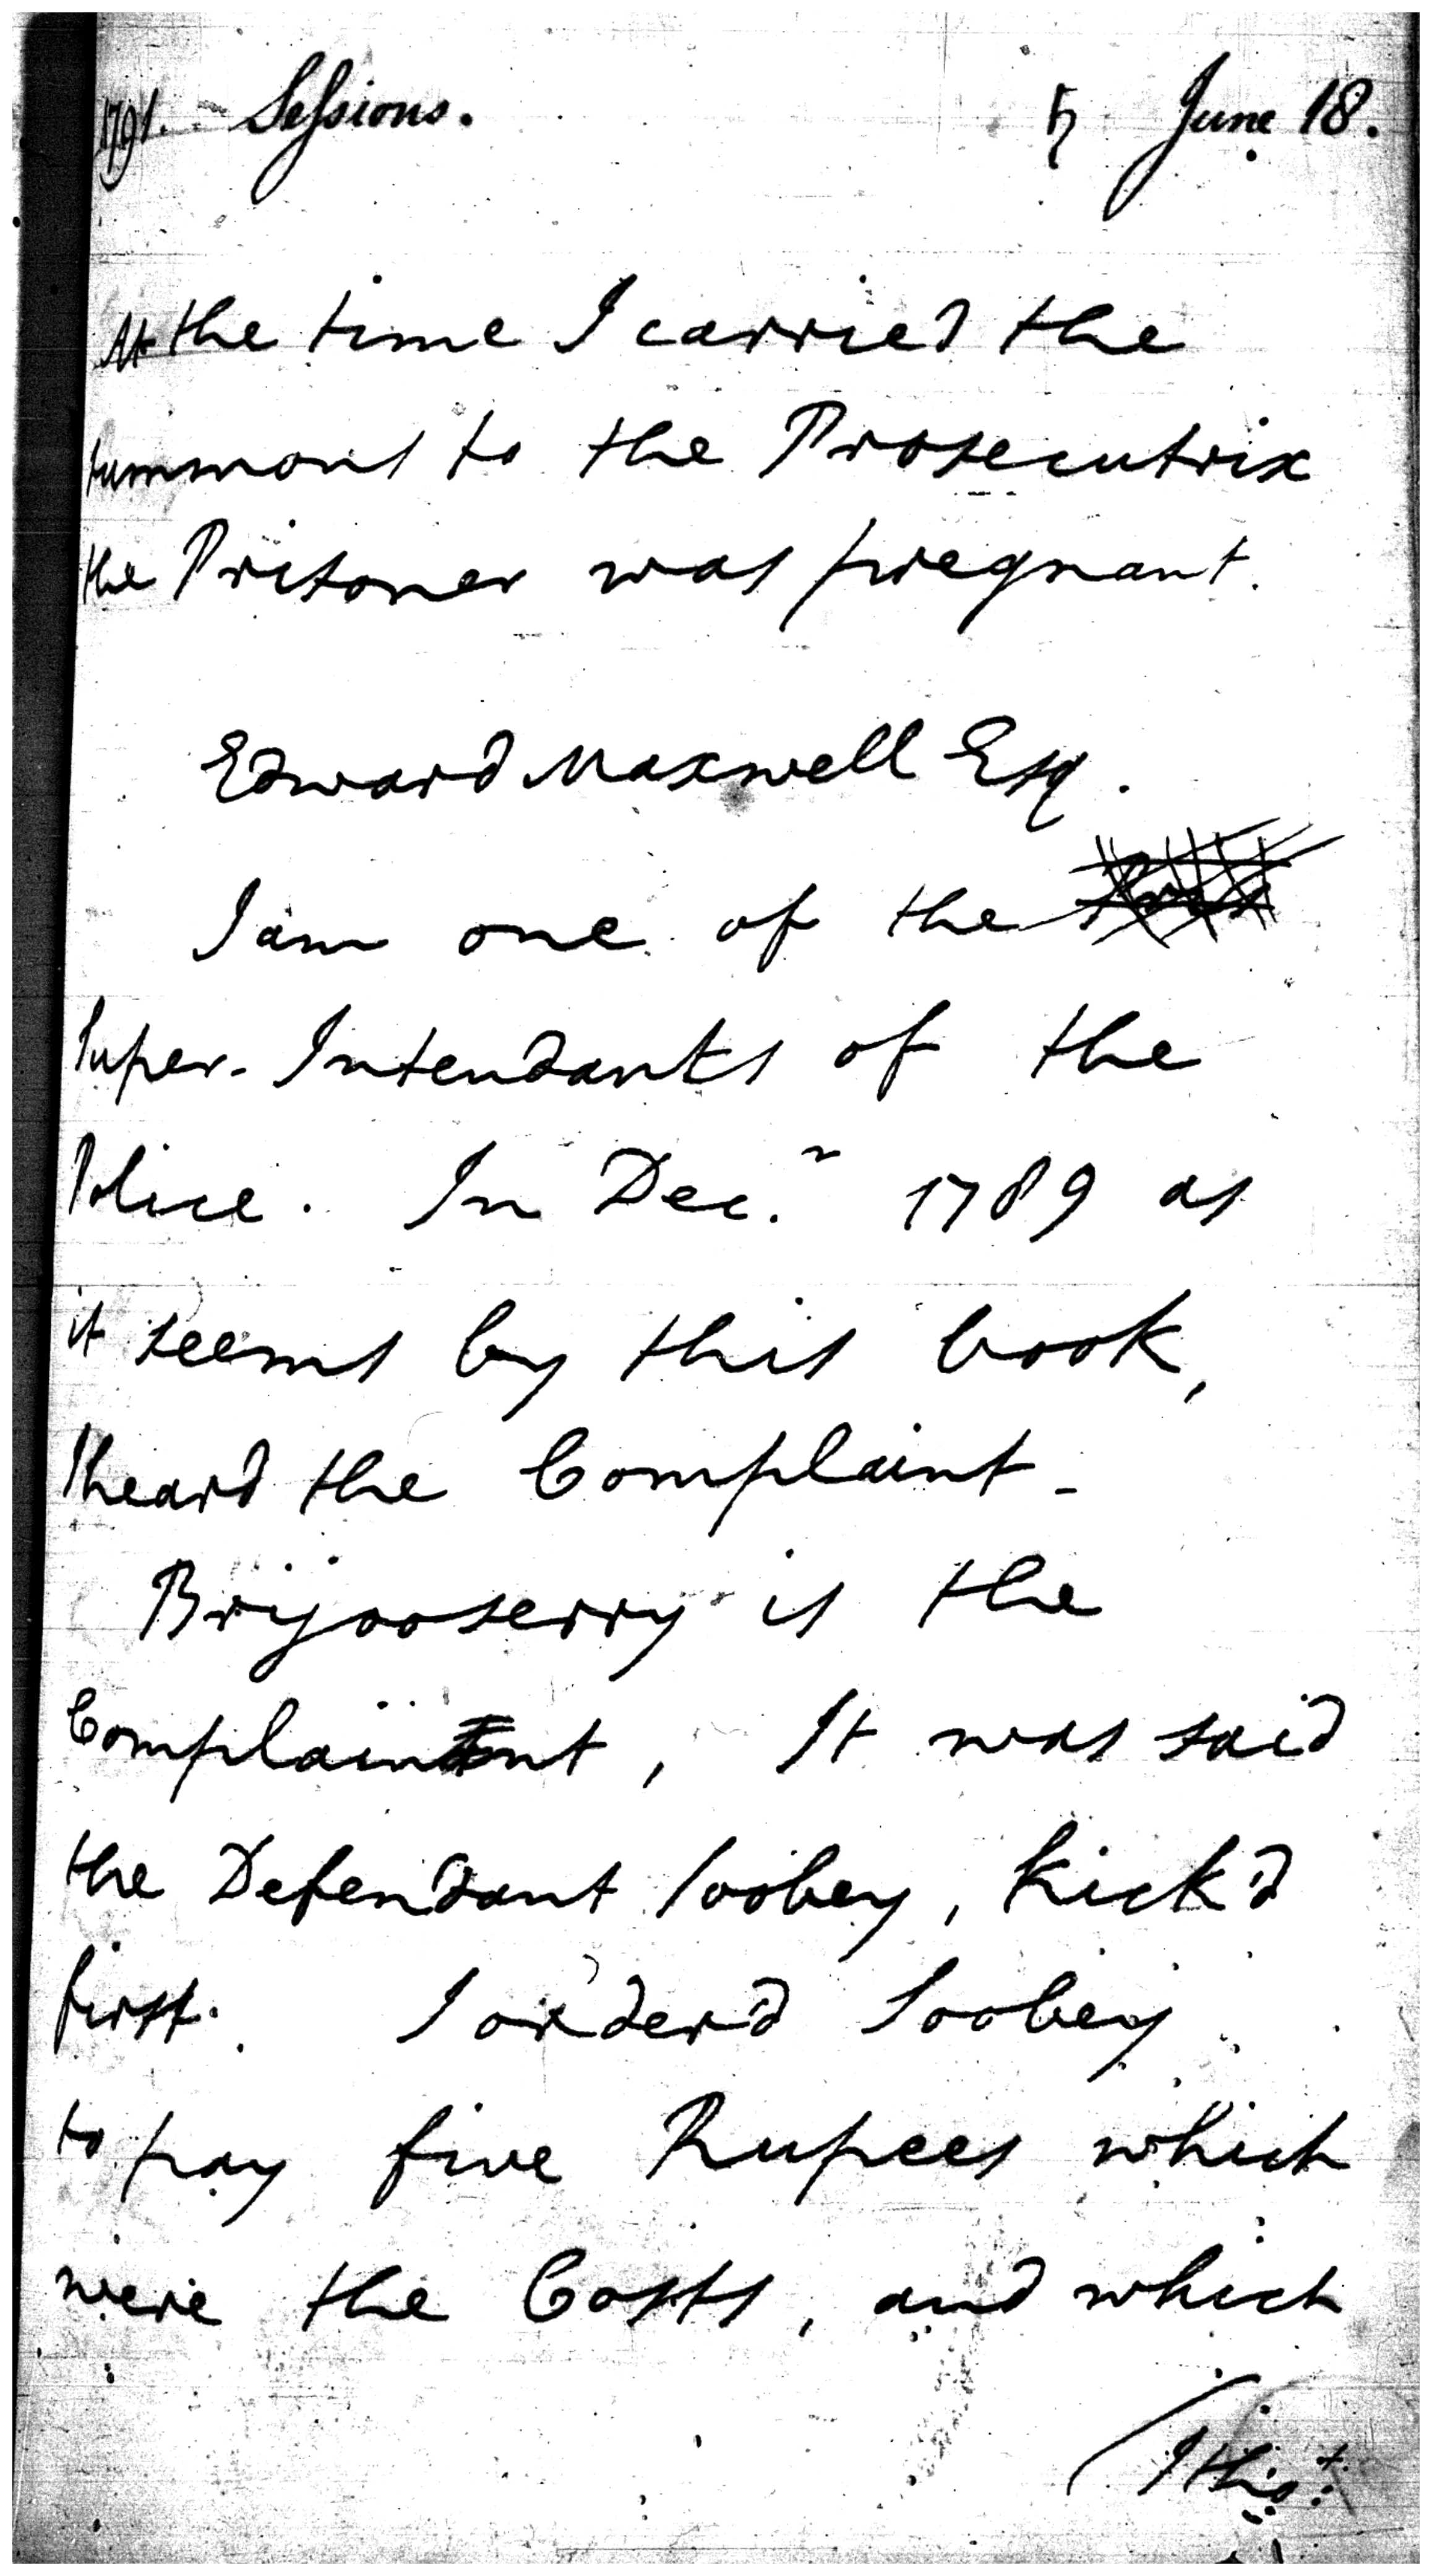 1791. Sessions. ♄ June 18.
At the time I carried the
summons to the Prosecutrix
the Prisoner was pregnant.
Edward Maxwell Esq.
I am one of the
Super-Intendants of the
Police. In Dec.r 1789 as
it seems by this book,
I heard the Complaint -
Brijooserry is the
Complainant, It was said
the Defendant Soobey, kick'd
first. I order'd Soobey
to pay five Rupees which
were the Costs, and which